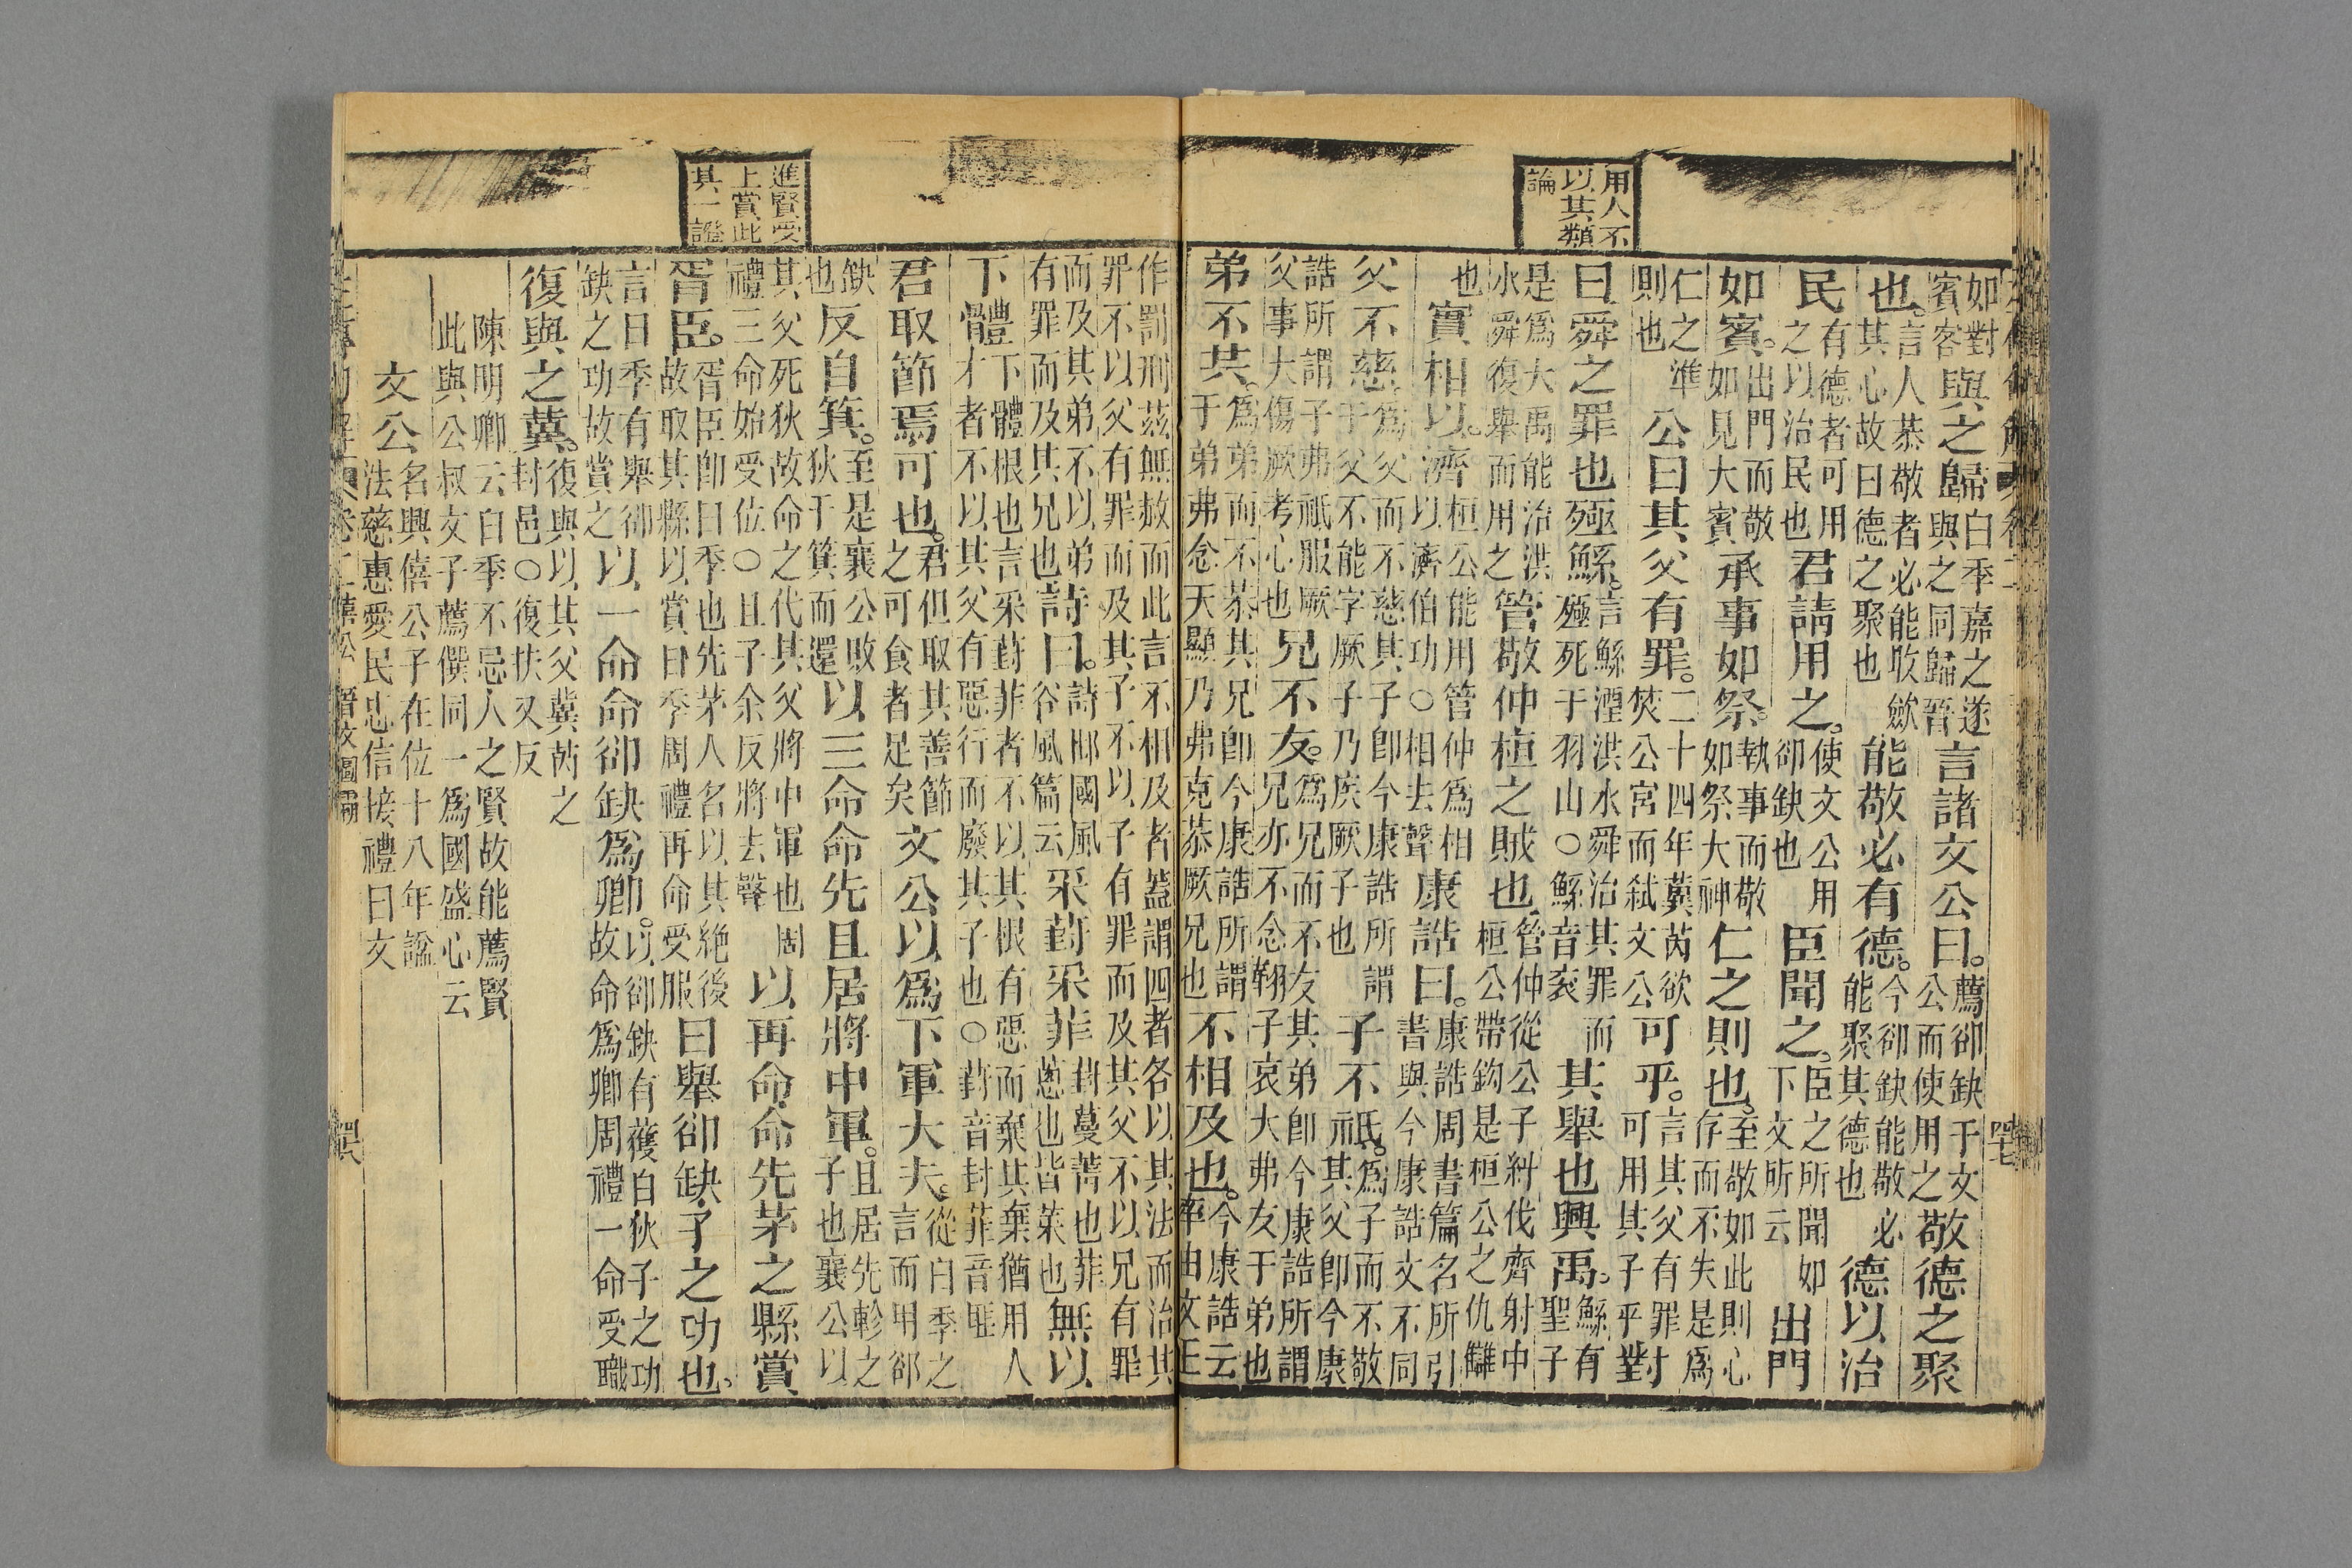 用人不
以其類
論
如對賓客與之歸白季嘉之遂與之同歸晉言諸文公曰。薦郤缺于文公而使用之敬德之聚
也。言人恭敬者必能收斂其心故曰德之聚也能敬必有德。今郤缺能敬必能聚其德也德以治
民有德者可用之以治民也君請用之。使文公用郤缺也臣聞之。臣之所聞如下文所云出門
如賓。出門而敬如見大賓承事如祭。執事而敬如祭大神仁之則也。至敬如此則心存而不失是爲
仁之準則也公曰其父有罪。二十四年冀芮欲焚公宮而弑文公可乎。言其父有罪可用其子乎對
曰舜之罪也殛鯀。言鯀湮洪水舜治其罪而殛死于羽山○鯀音衮其舉也興禹。鯀有聖子
是爲大禹能治洪水舜復舉而用之管敬仲桓之賊也管仲從公子糾伐齊射中桓公帶鉤是桓公之仇讎
也實相以。濟桓公能用管仲爲相以濟伯功○相去聲康誥曰。康誥周書篇名所引書與今康誥文不同
父不慈。爲父而不慈其子卽今康誥所謂于父不能字厥子乃疾厥子也子不祗。爲子而不敬其父卽今康
誥所謂子弗祗服厥父事大傷厥考心也兄不友。爲兄而不友其弟卽今康誥所謂兄亦不念鞠子哀大弗友于弟也
弟不共。爲弟而不恭其兄卽今康誥所謂于弟弗念天顯乃弗克恭厥兄也不相及也。今康誥云率由文王
進賢受
上賞此
其一證
作罰刑茲無赦而此言不相及者蓋謂四者各以其法而治其罪不以父有罪而及其子不以子有罪而及其父不以兄有罪
而及其弟不以弟有罪而及其兄也詩曰。詩邶國風谷風篇云采葑采菲葑蔓菁也菲葱也皆菜也無以
下體下體根也言采葑菲者不以其根有惡而棄其棄猶用人才者不以其父有惡行而廢其子也○葑音封菲音匪
君取節焉可也。君但取其善節之可食者足矣文公以爲下軍大夫。從白季之言而用郤
缺也反自箕。至是襄公敗狄于箕而還以三命命先且居將中軍。且居先軫之子也襄公以
其父死狄故命之代其父將中軍也周禮三命始受位○且子余反將去聲以再命命先茅之縣賞
胥臣。胥臣卽臼季也先茅人名以其絶後故取其縣以賞臼季周禮再命受服曰舉郤缺子之功也。
言臼季有舉郤缺之功故賞之以一命命郤缺爲卿。以郤缺有獲白狄子之功故命爲卿周禮一命受職
復與之冀。復與以其父冀芮之封邑○復扶又反
陳明卿云臼季不忌人之賢故能薦賢
此與公叔文子薦僎同一爲國盛心云
文公名興僖公子在位十八年諡法慈惠愛民忠信接禮曰文